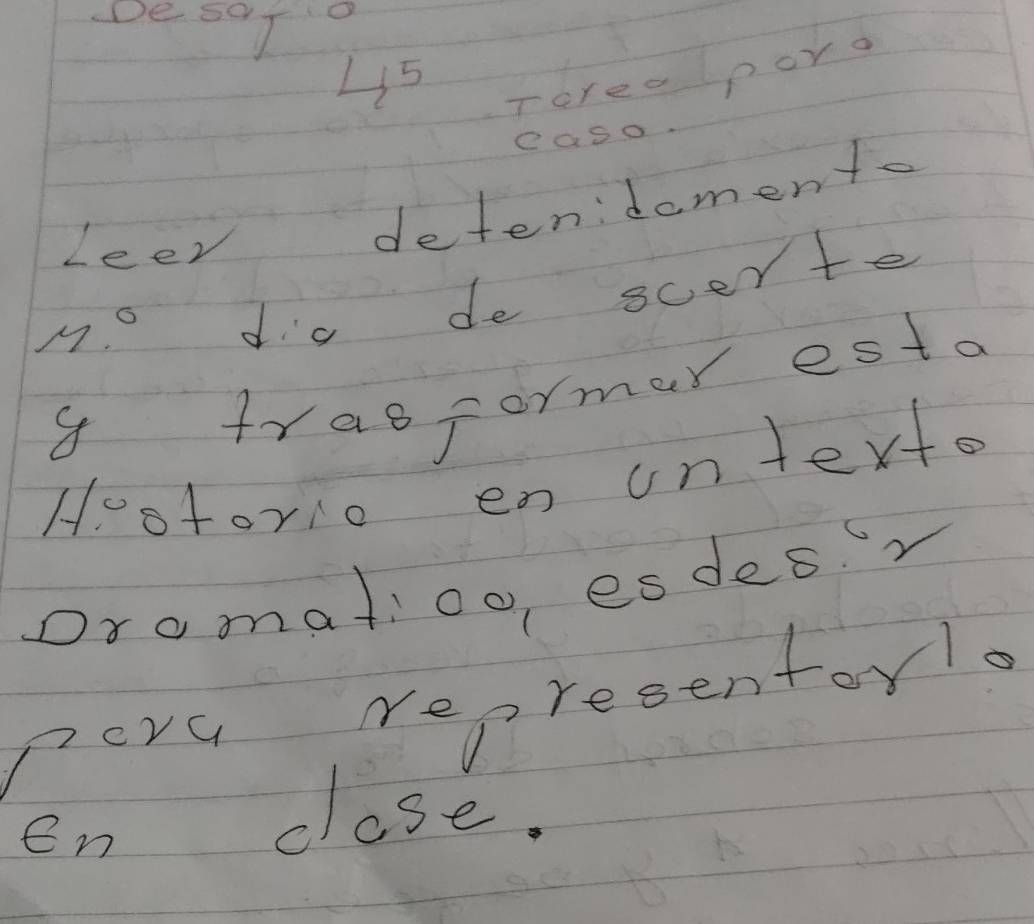 Desafio
45
Tarea para
casa.
Leer detenidamente
Mi dia de suerte
y trasformar esta
Historia en un texto
Dramatico, es desir
para representarlo
En clase.